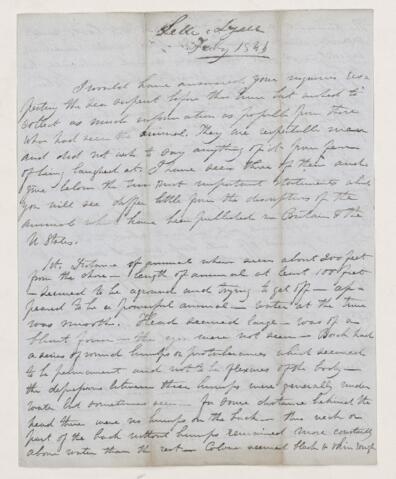 Lyell
1846
I would have answered your inquiries res-
pecting the sea serpent before this time but wished to
collect as much information as possible from those
who had seen the animal. They are respectable men
and did not wish to say anything of it from fear
of being laughed at. I have seen three of them and
give below the two most important statements which
you will see differ little from the description of the
animal which have been published in Britain & the
U States.
1st. Distance of animal when seen about 200 feet
from the shore — length of animal at least 100 feet
— seemed to be aground and trying to get off — ap-
peared to be a powerful animal — water at the time
was smooth. Head seemed large — was of a
blunt form — the eyes were not seen — Back had
a series of round humps or protuberances which seemed
to be permanent and not to be flexures of the body —
the depressions between these humps were generally under
water but sometimes seen — for some distance behind the
head there were no humps on the back — this neck or
part of the back without humps remained more constantly
above water than the rest — Colour seemed black & skin rough